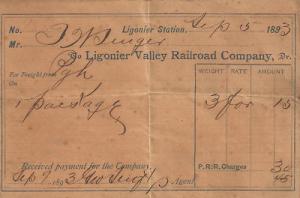 No. Ligonier Station, Sep 5 1893
Mr. J W Singer
To Ligonier Valley Railroad Company, Dr.
For Freight from WEIGHT RATE AMOUNT
Pgh
1 package 3 for 15
Received payment for the Company, P.R.R. Charges 30
Sep 9 1893 Agent 45